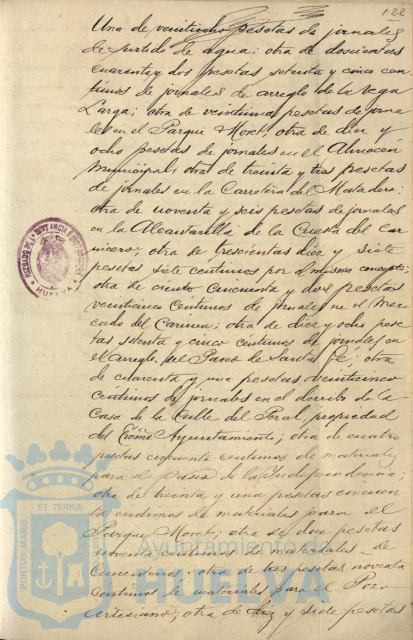 122
Una de veintiocho pesetas de jornales
de surtido de agua; otra de doscientas
cuarenta y dos pesetas setenta y cinco cen
timos de jornales de arreglo de la Vega
Larga; otra de veintiuna pesetas de jorna
les en el Parque Moret; otra de diez y
ocho pesetas de jornales en el Almacen
Municipal; otra de treinta y tres pesetas
de jornales en la Carretera del Matadero;
otra de noventa y seis pesetas de jornales
en la Alcantarilla de la Cuesta del Car
nicero; otra de trescientas diez y siete
pesetas siete centimos por el mismo concepto;
otra de ciento cincuenta y dos pesetas
veinticinco centimos de jornales en el Mer
cado del Carmen; otra de diez y ocho pese
tas setenta y cinco centimos de jornales en
el arreglo del Paseo de Santa Fé; otra
de cuarenta y una pesetas veinticinco
centimos de jornales en el derribo de la
Casa de la Calle del Peral, propiedad
del Excmo Ayuntamiento; otra de cuatro
pesetas cincuenta centimos de materiales
para el paseo de la Independencia;
otra de treinta y una pesetas cincuen
ta centimos de materiales para el
Parque Moret; otra de dos pesetas
noventa centimos de materiales de
Cementerios; otra de tres pesetas noventa
centimos de materiales para el Pozo
Artesiano; otra de diez y siete pesetas
JUZGADO DE 1ª INSTANCIA E INSTRUCCION
HUELVA
PORTUS MARIS ET TERRAE
Ayuntamiento de
HUELVA